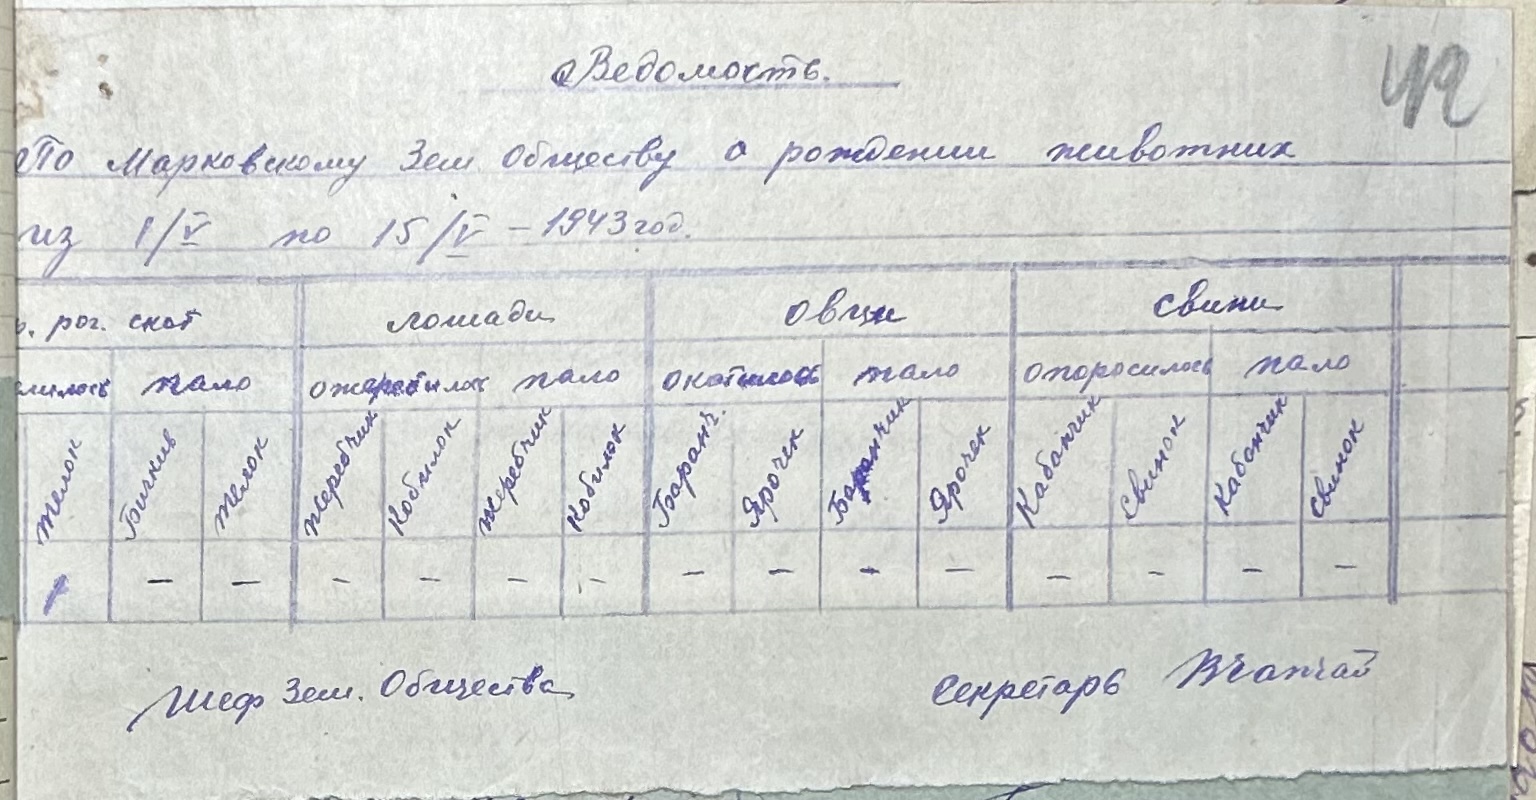 Ведомость.
42
По Марковскому Зем Обществу о рождении животних
из 1/V по 15/V – 1943 год.
. рог. скот лошади овци свини
милось пало ожеребилось пало окотилось пало опоросилось пало
телок Бичков телок жеребчик Кобилок жеребчик Кобилок Баранч. Ярочек Баранчик Ярочек Кабанчик Свинок Кабанчик Свинок
1 – – – – – – – – – – – – – –
Шеф Зем. Общества Секретарь